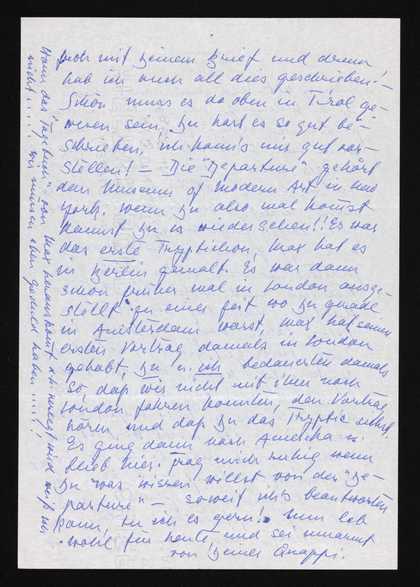 mich mit Deinem Brief und drum
hab ich auch all dies geschrieben! –
Schön muss es da oben in Tirol ge-
wesen sein, Du hast es so gut be-
schrieben, ich kann's mir gut vor-
stellen! – Die "Departure" gehört
dem Museum of Modern Art in New
York. Wenn Du also mal kommst
kannst Du es wiedersehen!! Es war
das erste Tryptichon, Max hat es
in Berlin gemalt. Es war dann
schon früher mal in London ausge-
stellt zu einer Zeit wo Du gerade
in Amsterdam warst, Max hat seinen
ersten Vortrag damals in London
gehabt, Du u. ich bedauerten damals
so, dass wir nicht mit ihm nach
London fahren konnten, den Vortrag
hören und dass Du das Tryptic siehst.
Es ging dann nach Amerika u.
blieb hier. Frag mich ruhig wenn
Du was wissen willst von der "De-
parture" – soweit ich's beantworten
kann, tu ich es gern! Nun leb
wohl für heute, und sei umarmt
von Deiner Quappi.
Wann das "Tagebuch" von Max herauskommt d.h. verlegt wird weiß ich
nicht..... wir müssen eben Geduld haben.....!